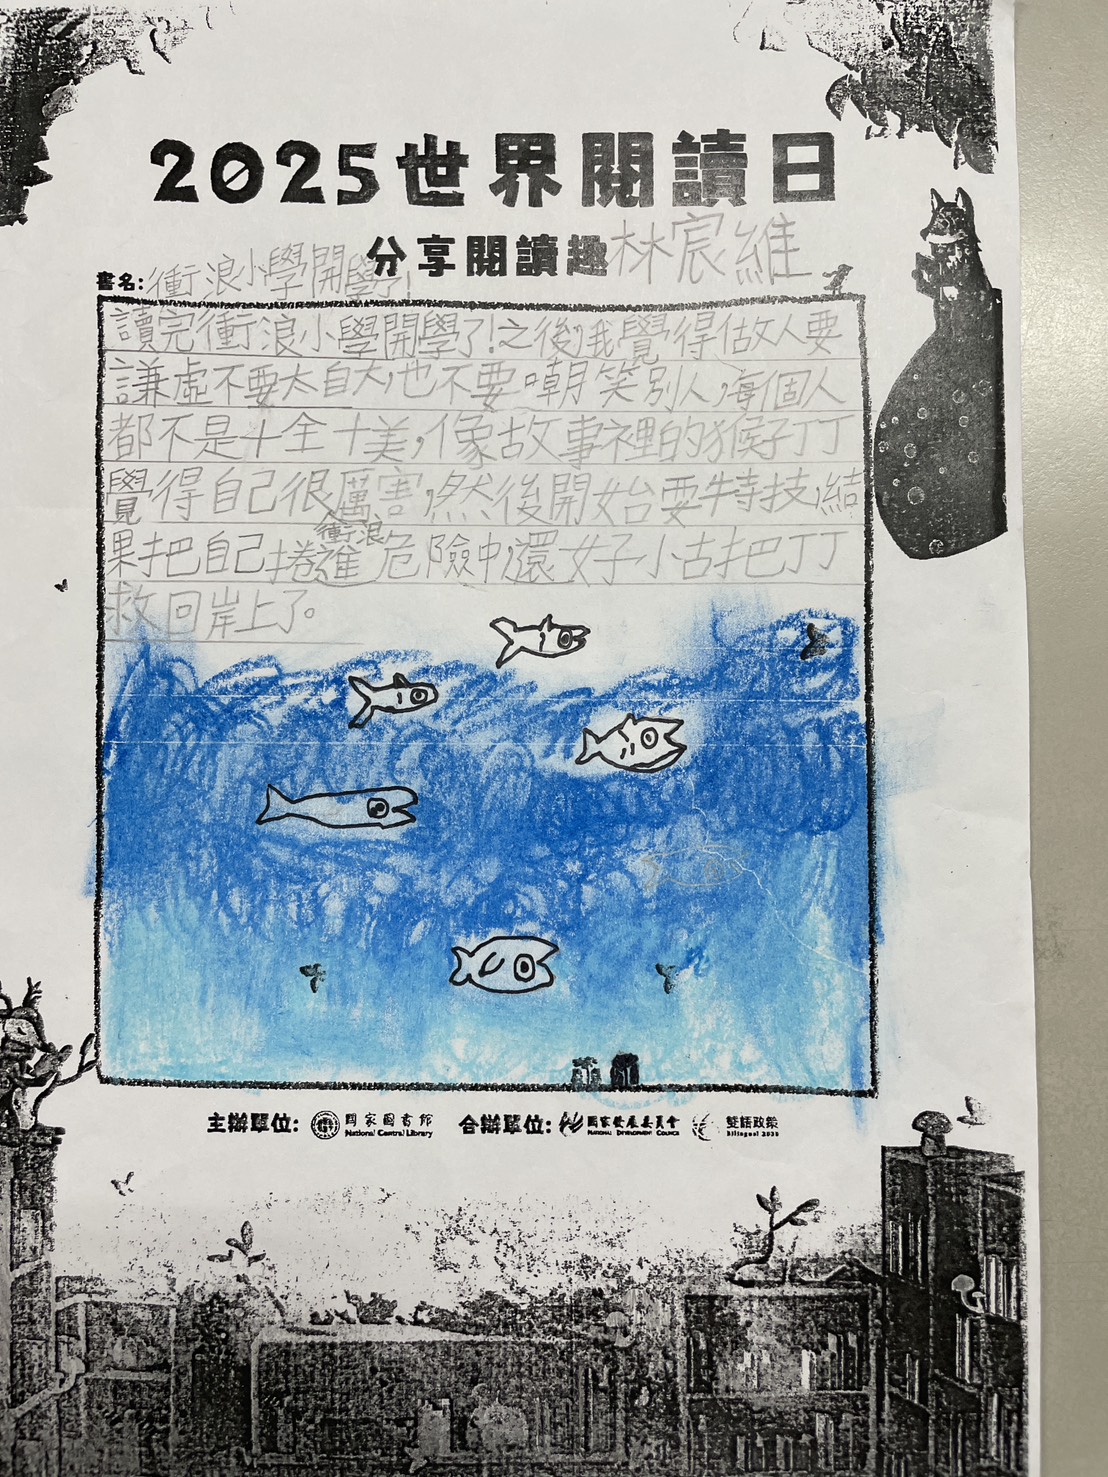 2025世界閱讀日
分享閱讀趣 林宸維
書名: 衝浪小學開學了!
讀完衝浪小學開學了!之後,我覺得做人要
謙虛不要太自大,也不要嘲笑別人,每個人
都不是十全十美,像故事裡的猴子丁丁
覺得自己很厲害,然後開始耍特技,結
果把自己捲進衝浪危險中,還好小古把丁丁
救回岸上了。
主辦單位: 國家圖書館 合辦單位: 國家發展委員會 雙語政策
National Central Library NATIONAL DEVELOPMENT COUNCIL Bilingual 2030